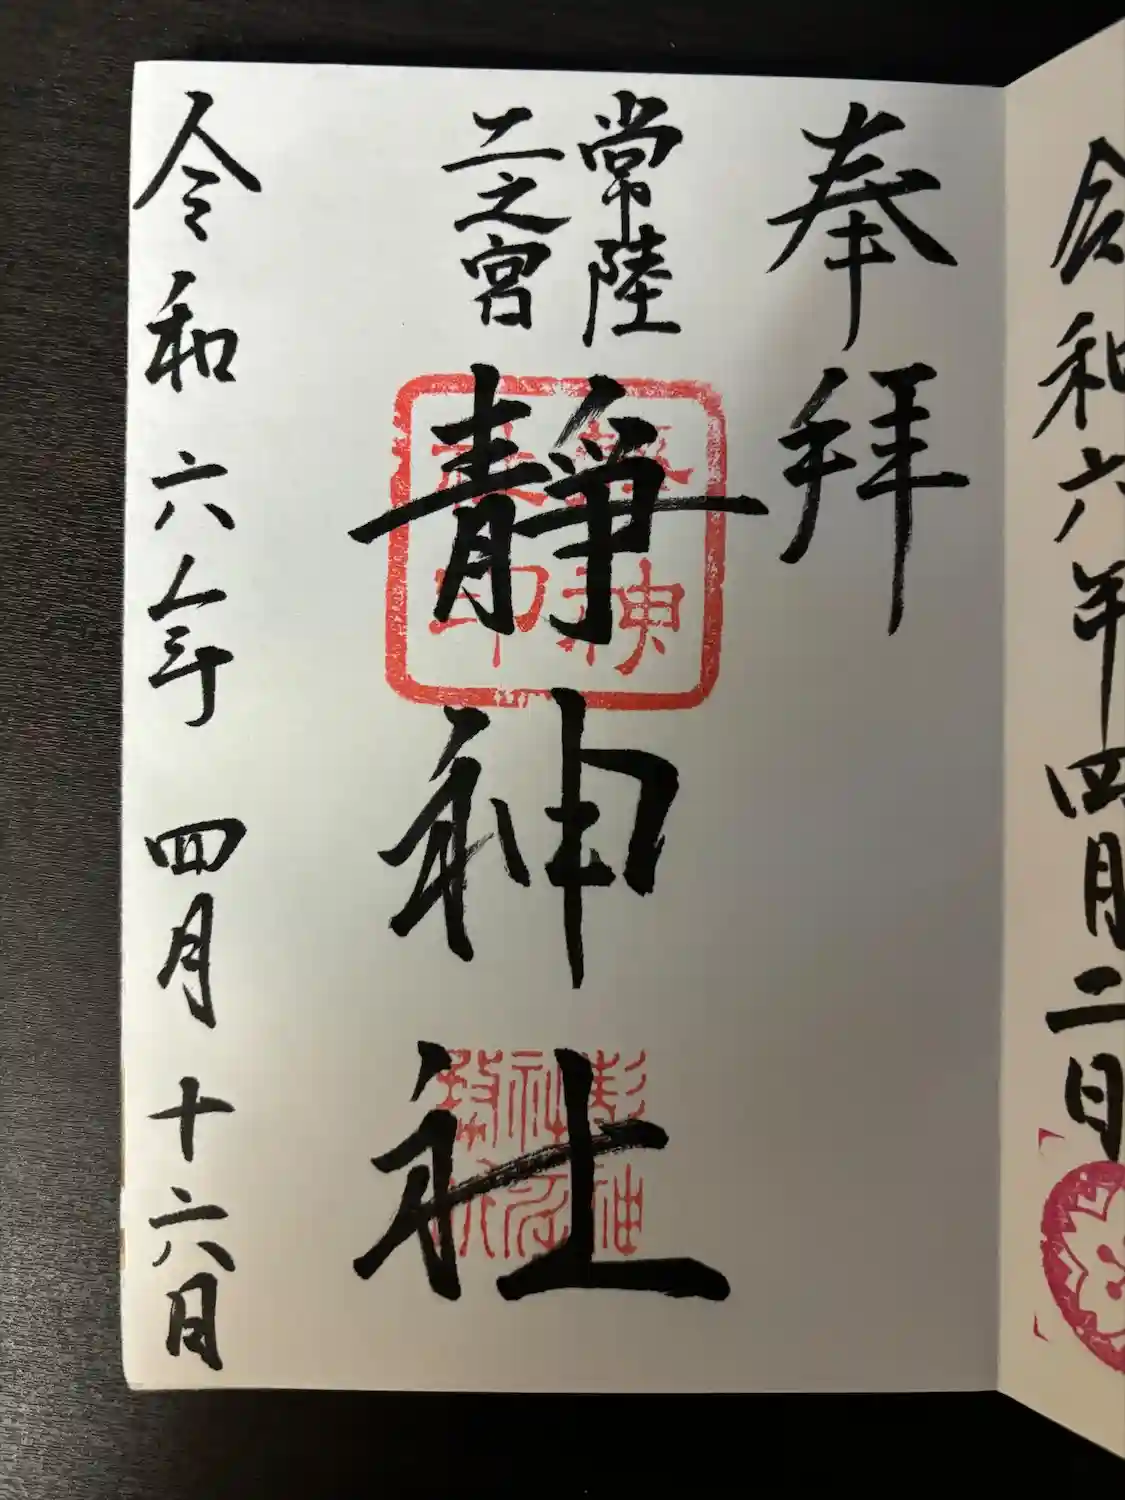 令和六年四月二日
奉拝
常陸
二之宮
靜神社
令和六年 四月 十六日